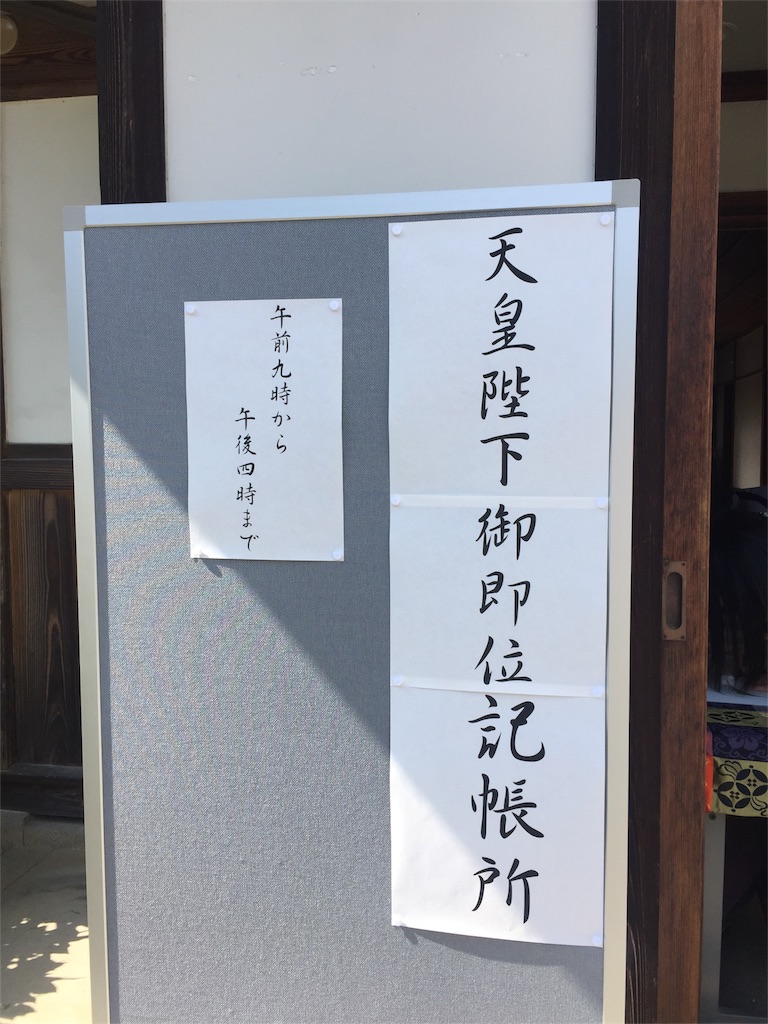 天皇陛下御即位記帳所
午前九時から
午後四時まで